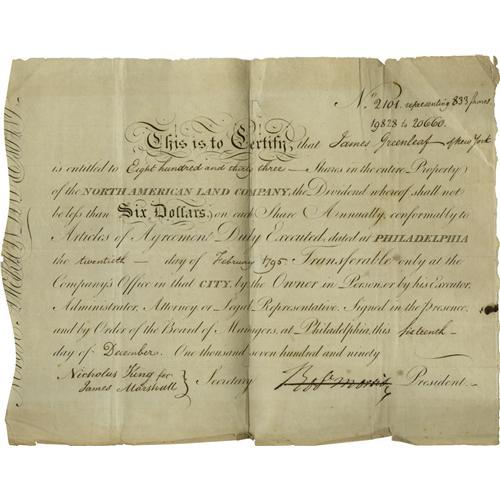 No. 2101. representing 833 shares
19828 to 20660.
This is to Certify, that James Greenleaf of New York
is entitled to Eight hundred and thirty three — Shares in the entire Property
of the NORTH AMERICAN LAND COMPANY, the Dividend whereof shall not
be less than Six Dollars, on each Share Annually, conformably to
Articles of Agreement Duly Executed, dated at PHILADELPHIA
the twentieth — day of February 1795 Transferable only at the
Company's Office in that CITY, by the Owner in Person, or by his Executor,
Administrator, Attorney or Legal Representative. Signed in the Presence,
and by Order of the Board of Managers, at Philadelphia, this sixteenth —
day of December. One thousand seven hundred and ninety
Nicholas King for
James Marshall } Secretary Robt Morris President.